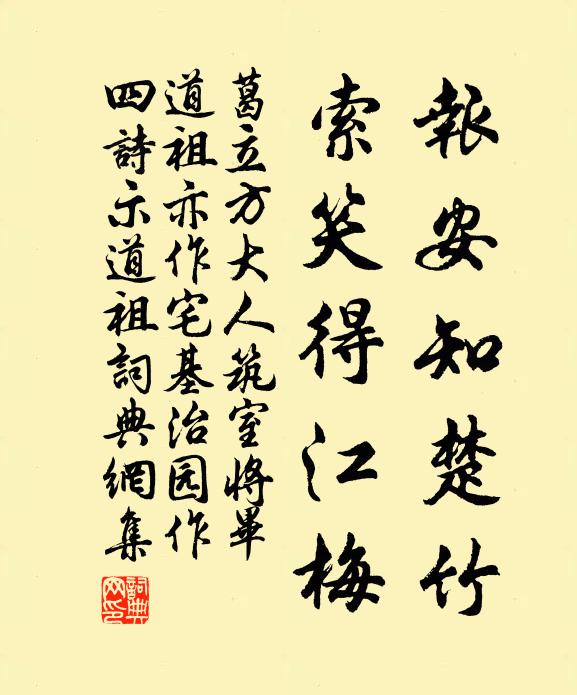 報安知楚竹
索笑得江梅
葛立方大人筑室將畢
道祖亦作宅基治园作
四詩示道祖詞典網集